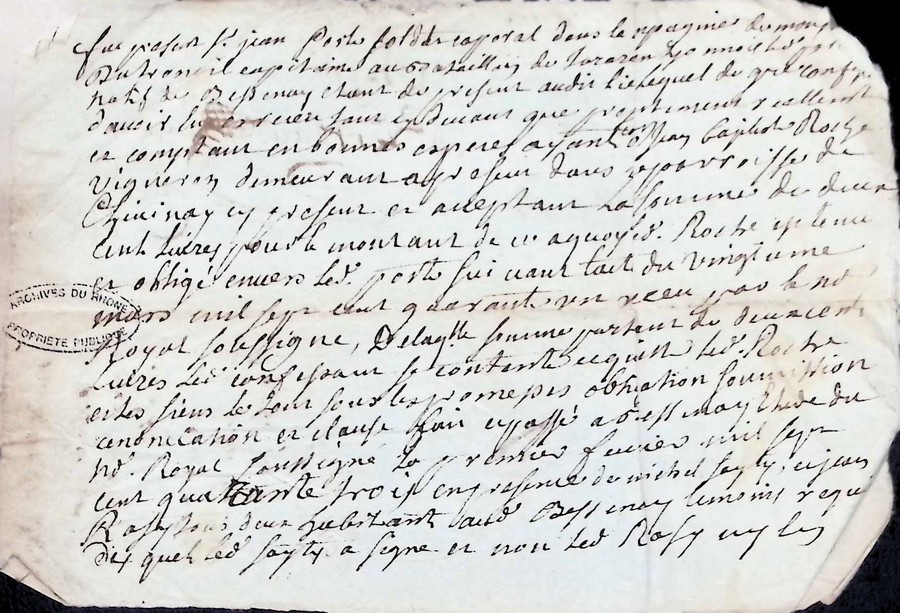 fut present Sr. jean Porte soldat caporal dans la compagnie de monsr
capitaine au Bataillon de
natif de Bessenay etant de present audit lieu lequel de gré confesse
d'avoir eu et receu tant cy devant que presentement reellement
et comptant en bonnes especes ayant cours de jean baptiste Roche
vigneron demeurant a present dans la parroisse de
Chivinay cy present et acceptant la somme de deux
cent livres pour le montant de ce aquoy led. Roche est tenu
et obligé envers led. porte suivant lacte du vingtieme
mars mil sept cent quarante un receu par le no.
Royal soussigne, De laqlle somme partant de deux cent
Livres led. confessant se contente et quitte led. Roche
et les siens le tout sous les promesses obligation soumission
renonciation et clause fait et passé a Bessenay Etude du
no. Royal soussigne le premier fevrier mil sept
cent quarante trois en presence de michel et jean
tous deux habitant aud. Bessenay temoins requis
desquels led. a signe et non led. ny les
ARCHIVES DU RHONE
PROPRIETE PUBLIQUE